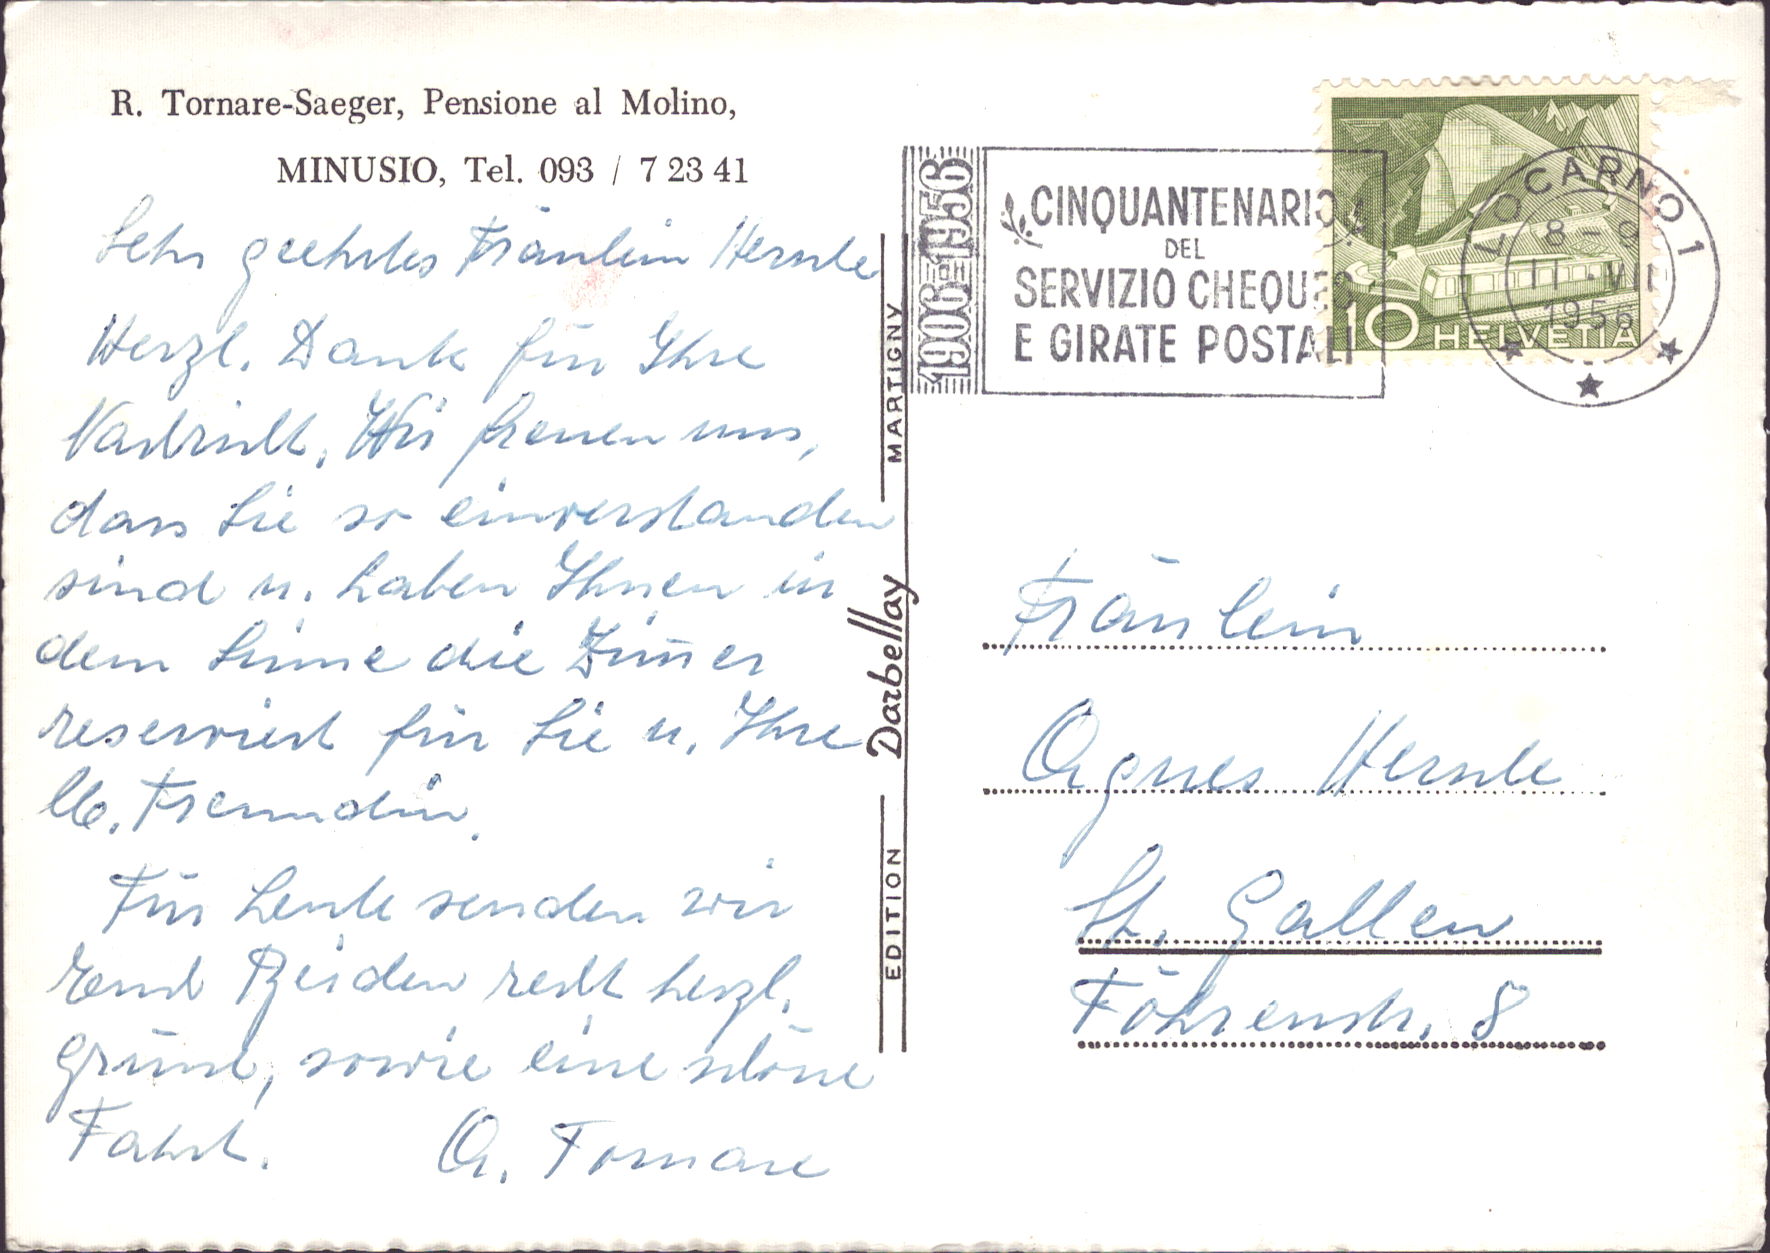 R. Tornare-Saeger, Pensione al Molino,
MINUSIO, Tel. 093 / 7 23 41
Sehr geehrtes Fräulein
Herzl. Dank für Ihre
Nachricht. Wir freuen uns,
dass Sie so einverstanden
sind u. haben Ihnen in
dem Sinne die Zim̅er
reserviert für Sie u. Ihre
lb. Freundin.
Für heute senden wir
Beiden recht herzl.
Grüsse, sowie eine schöne
Fahrt. A. Tornare
EDITION Darbellay MARTIGNY
1906-1956
CINQUANTENARIO
DEL
SERVIZIO CHEQUES
E GIRATE POSTALI
LOCARNO 1
8-9
11.VII
1956
10 HELVETIA
Fräulein
Agnes
St. Gallen
Föhrenstr. 8